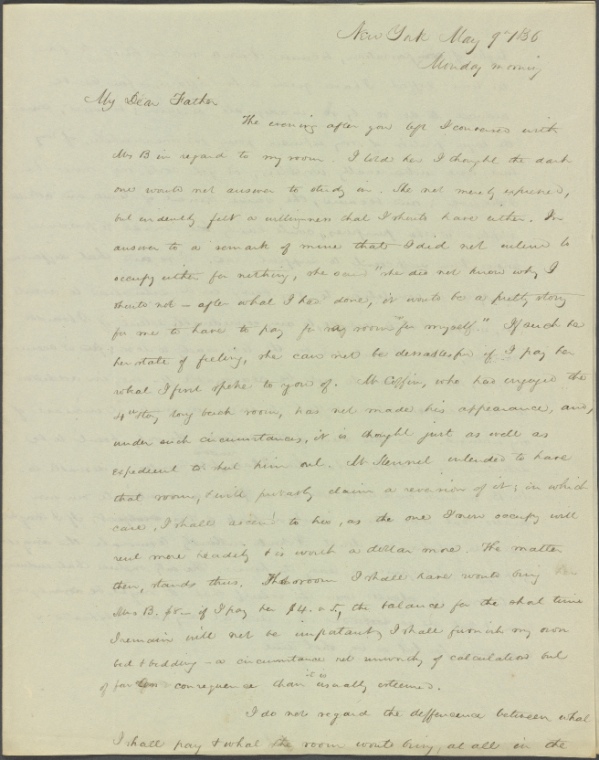 New York May 9th 1836
Monday morning
My Dear Father
The evening after you left I conversed with
Mrs B in regard to my room. I told her I thought the dark
one would not answer to study in. She not merely expressed,
but evidently felt a willingness that I should have either. In
answer to a remark of mine that I did not intend to
occupy either for nothing, she said "she did not know why I
should not – after what I had done, it would be a pretty story
for me to have to pay for my room for myself." If such be
her state of feeling, she can not be dissatisfied if I pay her
what I first spoke to you of. Mr Coffin, who had engaged the
4th story long back room, has not made his appearance, and,
under such circumstances, it is thought just as well as
expedient to shut him out. Mr intended to have
that room, & will probably claim a reversion of it; in which
case, I shall to his, as the one I now occupy will
rent more readily & is worth a dollar more. The matter
then, stands thus. The room I shall have would bring
Mrs B. $8 – if I pay her $4. or 5, the balance for the short time
I remain will not be important, I shall furnish my own
bed & bedding – a circumstance not unworthy of calculation but
of far less consequence than it is usually esteemed.
I do not regard the difference between what
I shall pay & what the room would bring, at all in the